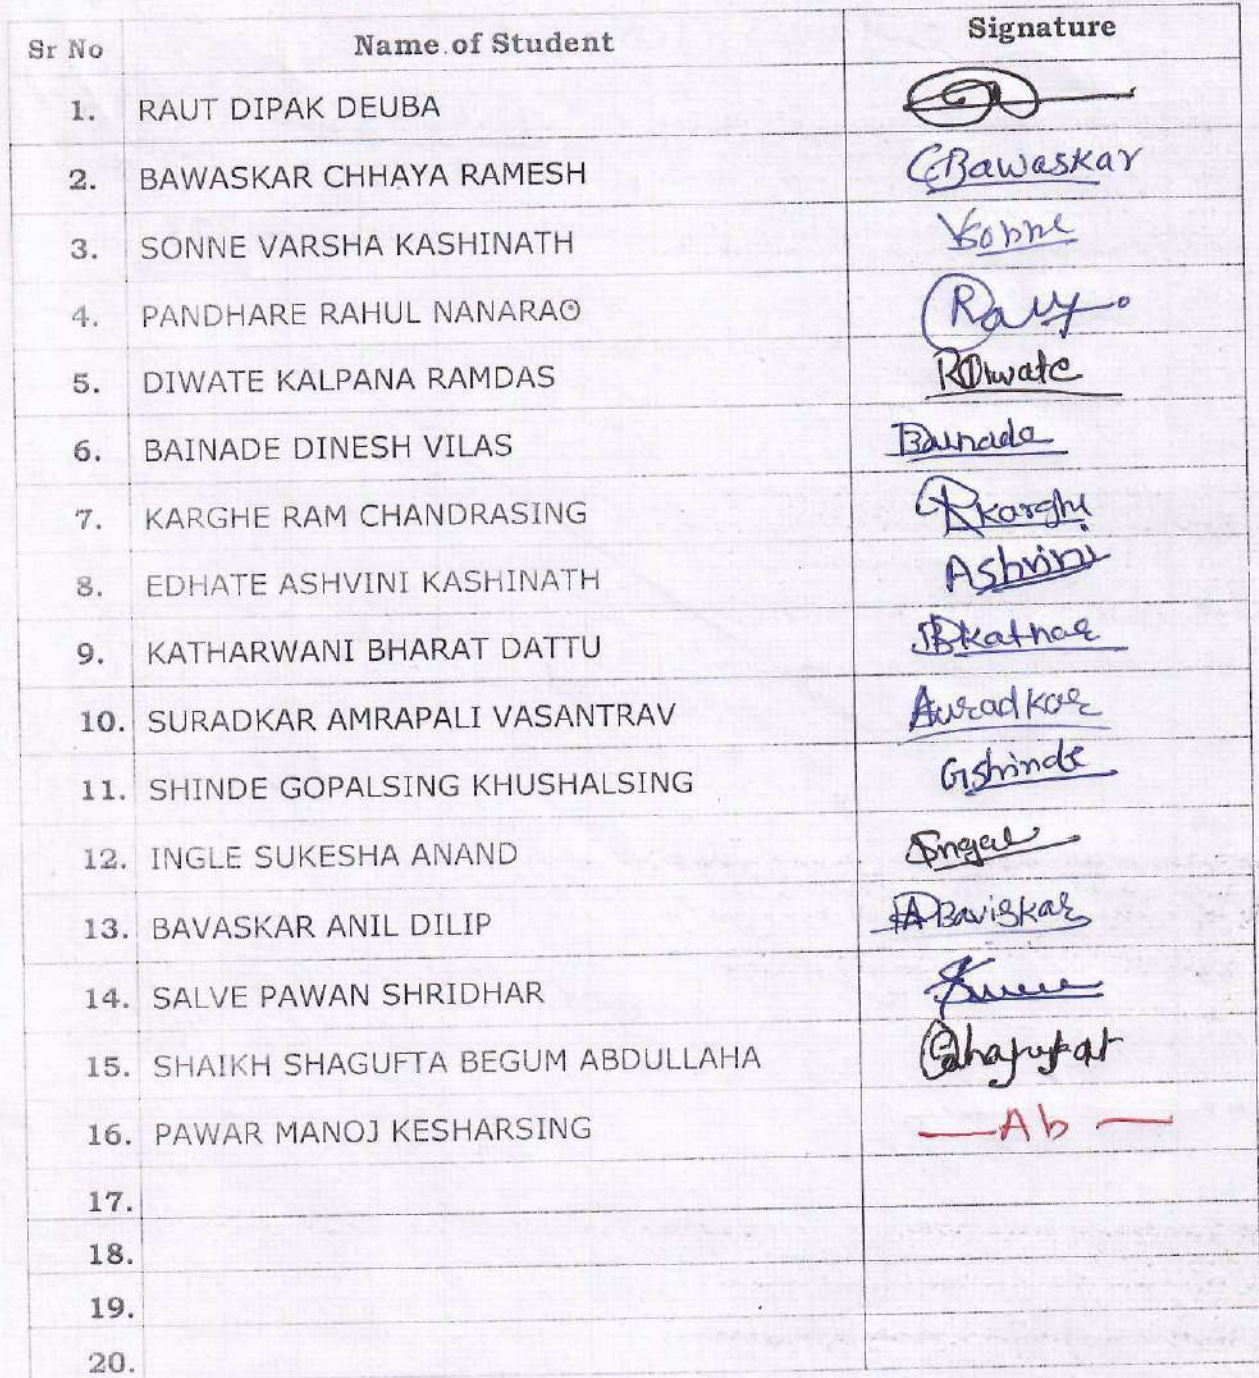 Sr No Name of Student Signature
1. RAUT DIPAK DEUBA
2. BAWASKAR CHHAYA RAMESH CBawaskar
3. SONNE VARSHA KASHINATH VSonne
4. PANDHARE RAHUL NANARAO
5. DIWATE KALPANA RAMDAS RDiwate
6. BAINADE DINESH VILAS Bainade
7. KARGHE RAM CHANDRASING RKarghe
8. EDHATE ASHVINI KASHINATH Ashvini
9. KATHARWANI BHARAT DATTU BKathar
10. SURADKAR AMRAPALI VASANTRAV Auradkar
11. SHINDE GOPALSING KHUSHALSING GShinde
12. INGLE SUKESHA ANAND
13. BAVASKAR ANIL DILIP ABaviskar
14. SALVE PAWAN SHRIDHAR
15. SHAIKH SHAGUFTA BEGUM ABDULLAHA
16. PAWAR MANOJ KESHARSING —Ab—
17.
18.
19.
20.